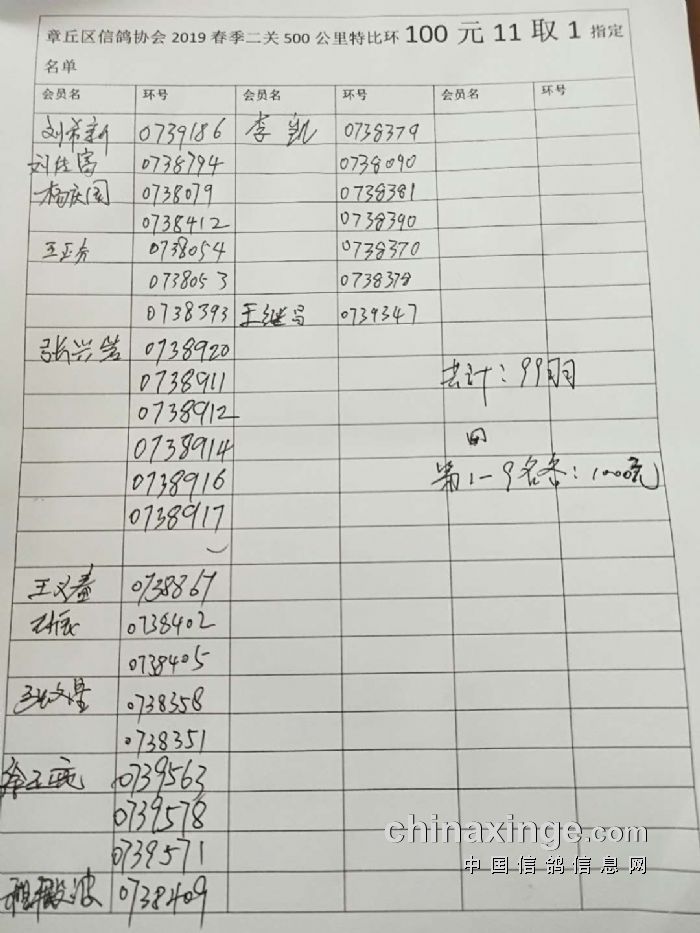 章丘区信鸽协会 2019 春季二关 500 公里特比环 100 元 11 取 1 指定
名单
会员名 环号 会员名 环号 会员名 环号
刘希新 0739186 李凯 0738379
刘佳富 0738794 0738090
杨庆国 0738079 0738381
0738412 0738390
王正方 0738054 0738370
0738053 0738378
0738393 王继 0739347
张兴 0738920
0738911 共计:99羽
0738912
0738914 回
0738916 第1-9名各:1000元
0738917
王义 0738867
0738402
0738405
文星 0738358
0738351
徐正 0739563
0739578
0739571
波 0738409
chinaxinge.com
中国信鸽信息网